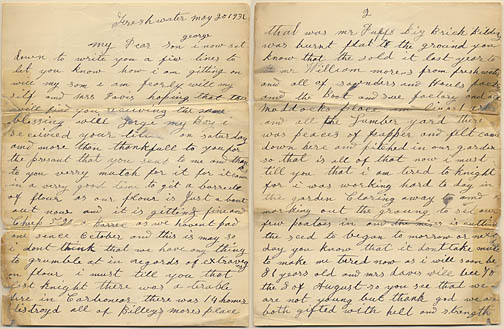 Freshwater may 20 1932
george
my Dear son i now set
down to write you a fiw lines to
let you know how i am gitting on
wice my son i am pearly will my
silf and mrs Davis hopfing that
will find you receiving the same
blessing will Jorge my boy i
received your litter on saturday
and more then thankfull to you for
the present that you sent to me and
to you verry match for it for it come
in a very good time to git a barrell
of flour as our flour is just about
out now and it is gitting fine and
cheap a Barrel as we havent paid
sence October and this is may
i dont think that we have any thing
to grumble at in regords of
on flour i must tell you that
last knight there was a terable
fire in Carbonear there was 14 homes
destroyd all of Billeys mores place
2
that was mr Duffs big Brick Bilding
was burnt flat to the ground you
know that the sold it last year to
to mr William mores from freshwater
and all of saynders and howels factory
and the boot and sue factory and
maddocks place
and all the lumber yard there
was peaces of peapper and filt cam
down here and piched in our garden
so that is all of that now i must
till you that i am tered to knight
for i was working hard to day in
the garden Claring away and
morking out the ground to sed our
few poatoes in
the seed to begon to morrow or
day you know that it dont take mutch
to make me tared now as i will soon be
81 years old and mrs davis will bee
the 3 of August so you see that we
are not young but thank god we are
both gifted with helt and strength